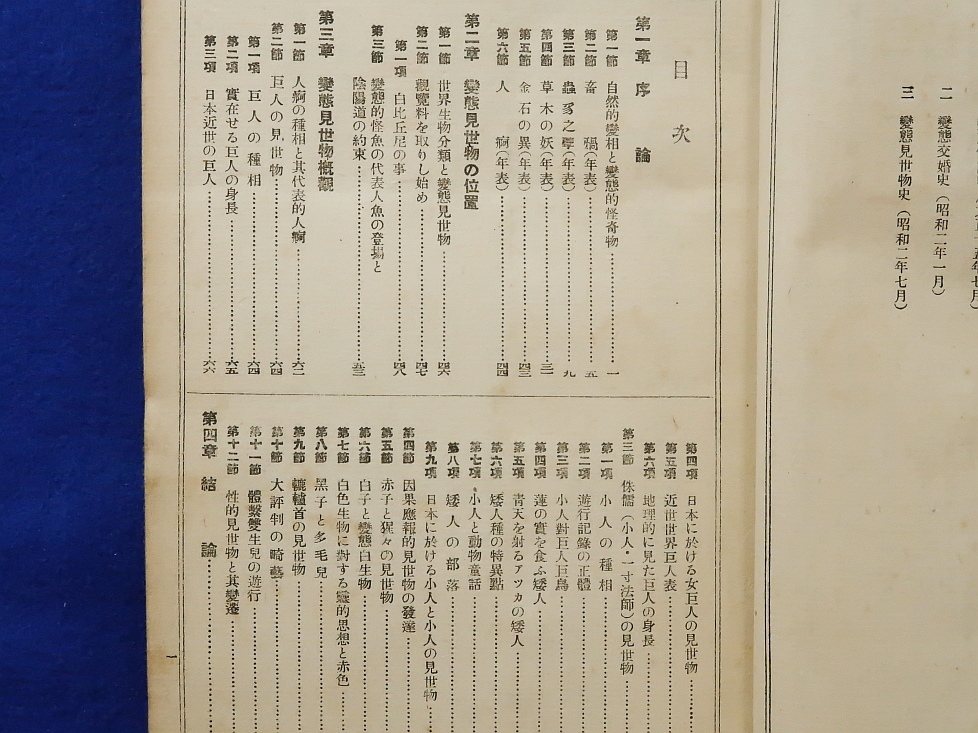 二　變態交婚史（昭和二年一月）
三　變態見世物史（昭和二年七月）
目次
第一章　序論
第一節　自然的變相と變態的怪奇物……一
第二節　畜禍（年表）……五
第三節　蟲豸之孼（年表）……九
第四節　草木の妖（年表）……三一
第五節　金石の異（年表）……四三
第六節　人痾（年表）……四四
第二章　變態見世物の位置
第一節　世界生物分類と變態見世物……四六
第二節　觀覽料を取りし始め……四七
第一項　白比丘尼の事……四八
第三節　變態的怪魚の代表人魚の登場と
陰陽道の約束……五三
第三章　變態見世物概觀
第一節　人痾の種相と其代表的人痾……六二
第二節　巨人の見世物……六四
第一項　巨人の種相……六四
第二項　實在せる巨人の身長……六五
第三項　日本近世の巨人……六六
第四項　日本に於ける女巨人の見世物……
第五項　近世世界巨人表……
第六項　地理的に見た巨人の身長……
第三節　侏儒（小人・一寸法師）の見世物……
第一項　小人の種相……
第二項　遊行記錄の正體……
第三項　小人對巨人巨鳥……
第四項　蓮の實を食ふ矮人……
第五項　靑天を射るアツカの矮人……
第六項　矮人種の特異點……
第七項　小人と動物童話……
第八項　矮人の部落……
第九項　日本に於ける小人と小人の見世物……
第四節　因果應報的見世物の發達……
第五節　赤子と猩々の見世物……
第六節　白子と變態白生物……
第七節　白色生物に對する靈的思想と赤色……
第八節　黑子と多毛兒……
第九節　轆轤首の見世物……
第十節　大評判の畸藝……
第十一節　體繫雙生兒の遊行……
第十二節　性的見世物と其變遷……
第四章　結論……
一